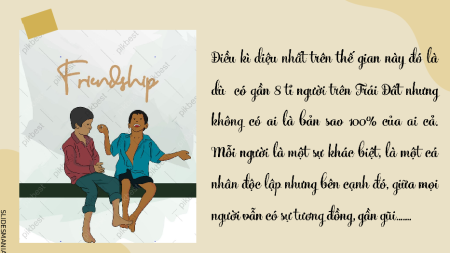 Friendship
Điều kì diệu nhất trên thế gian này đó là
dù có gần 8 tỉ người trên Trái Đất nhưng
không có ai là bản sao 100% của ai cả.
Mỗi người là một sự khác biệt, là một cá
nhân độc lập nhưng bên cạnh đó, giữa mọi
người vẫn có sự tương đồng, gần gũi.......
SLIDESMANIA
pikbest
pikbest
pikbest
pikbest